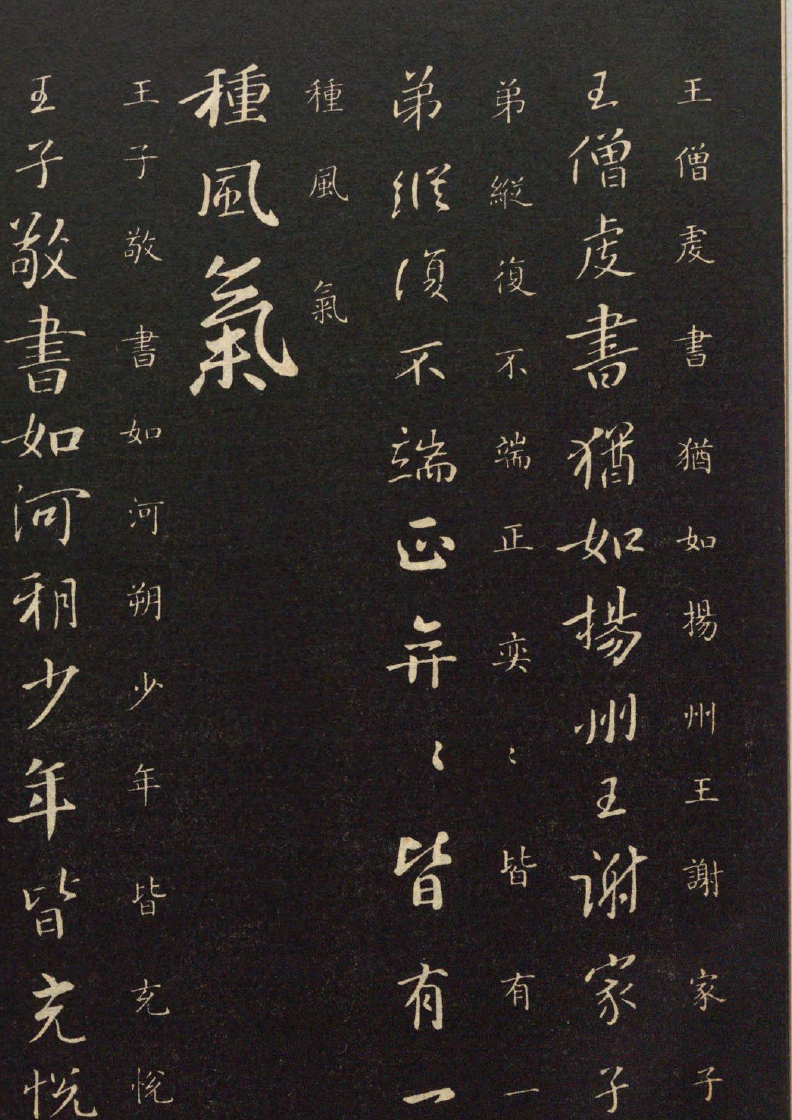 王僧虔書猶如揚州王謝家子
王僧虔書猶如揚州王謝家子
弟縱復不端正奕〻皆有一
弟縱復不端正弈〻皆有一
種風氣
種風氣
王子敬書如河朔少年皆充悅
王子敬書如河朔少年皆充悅